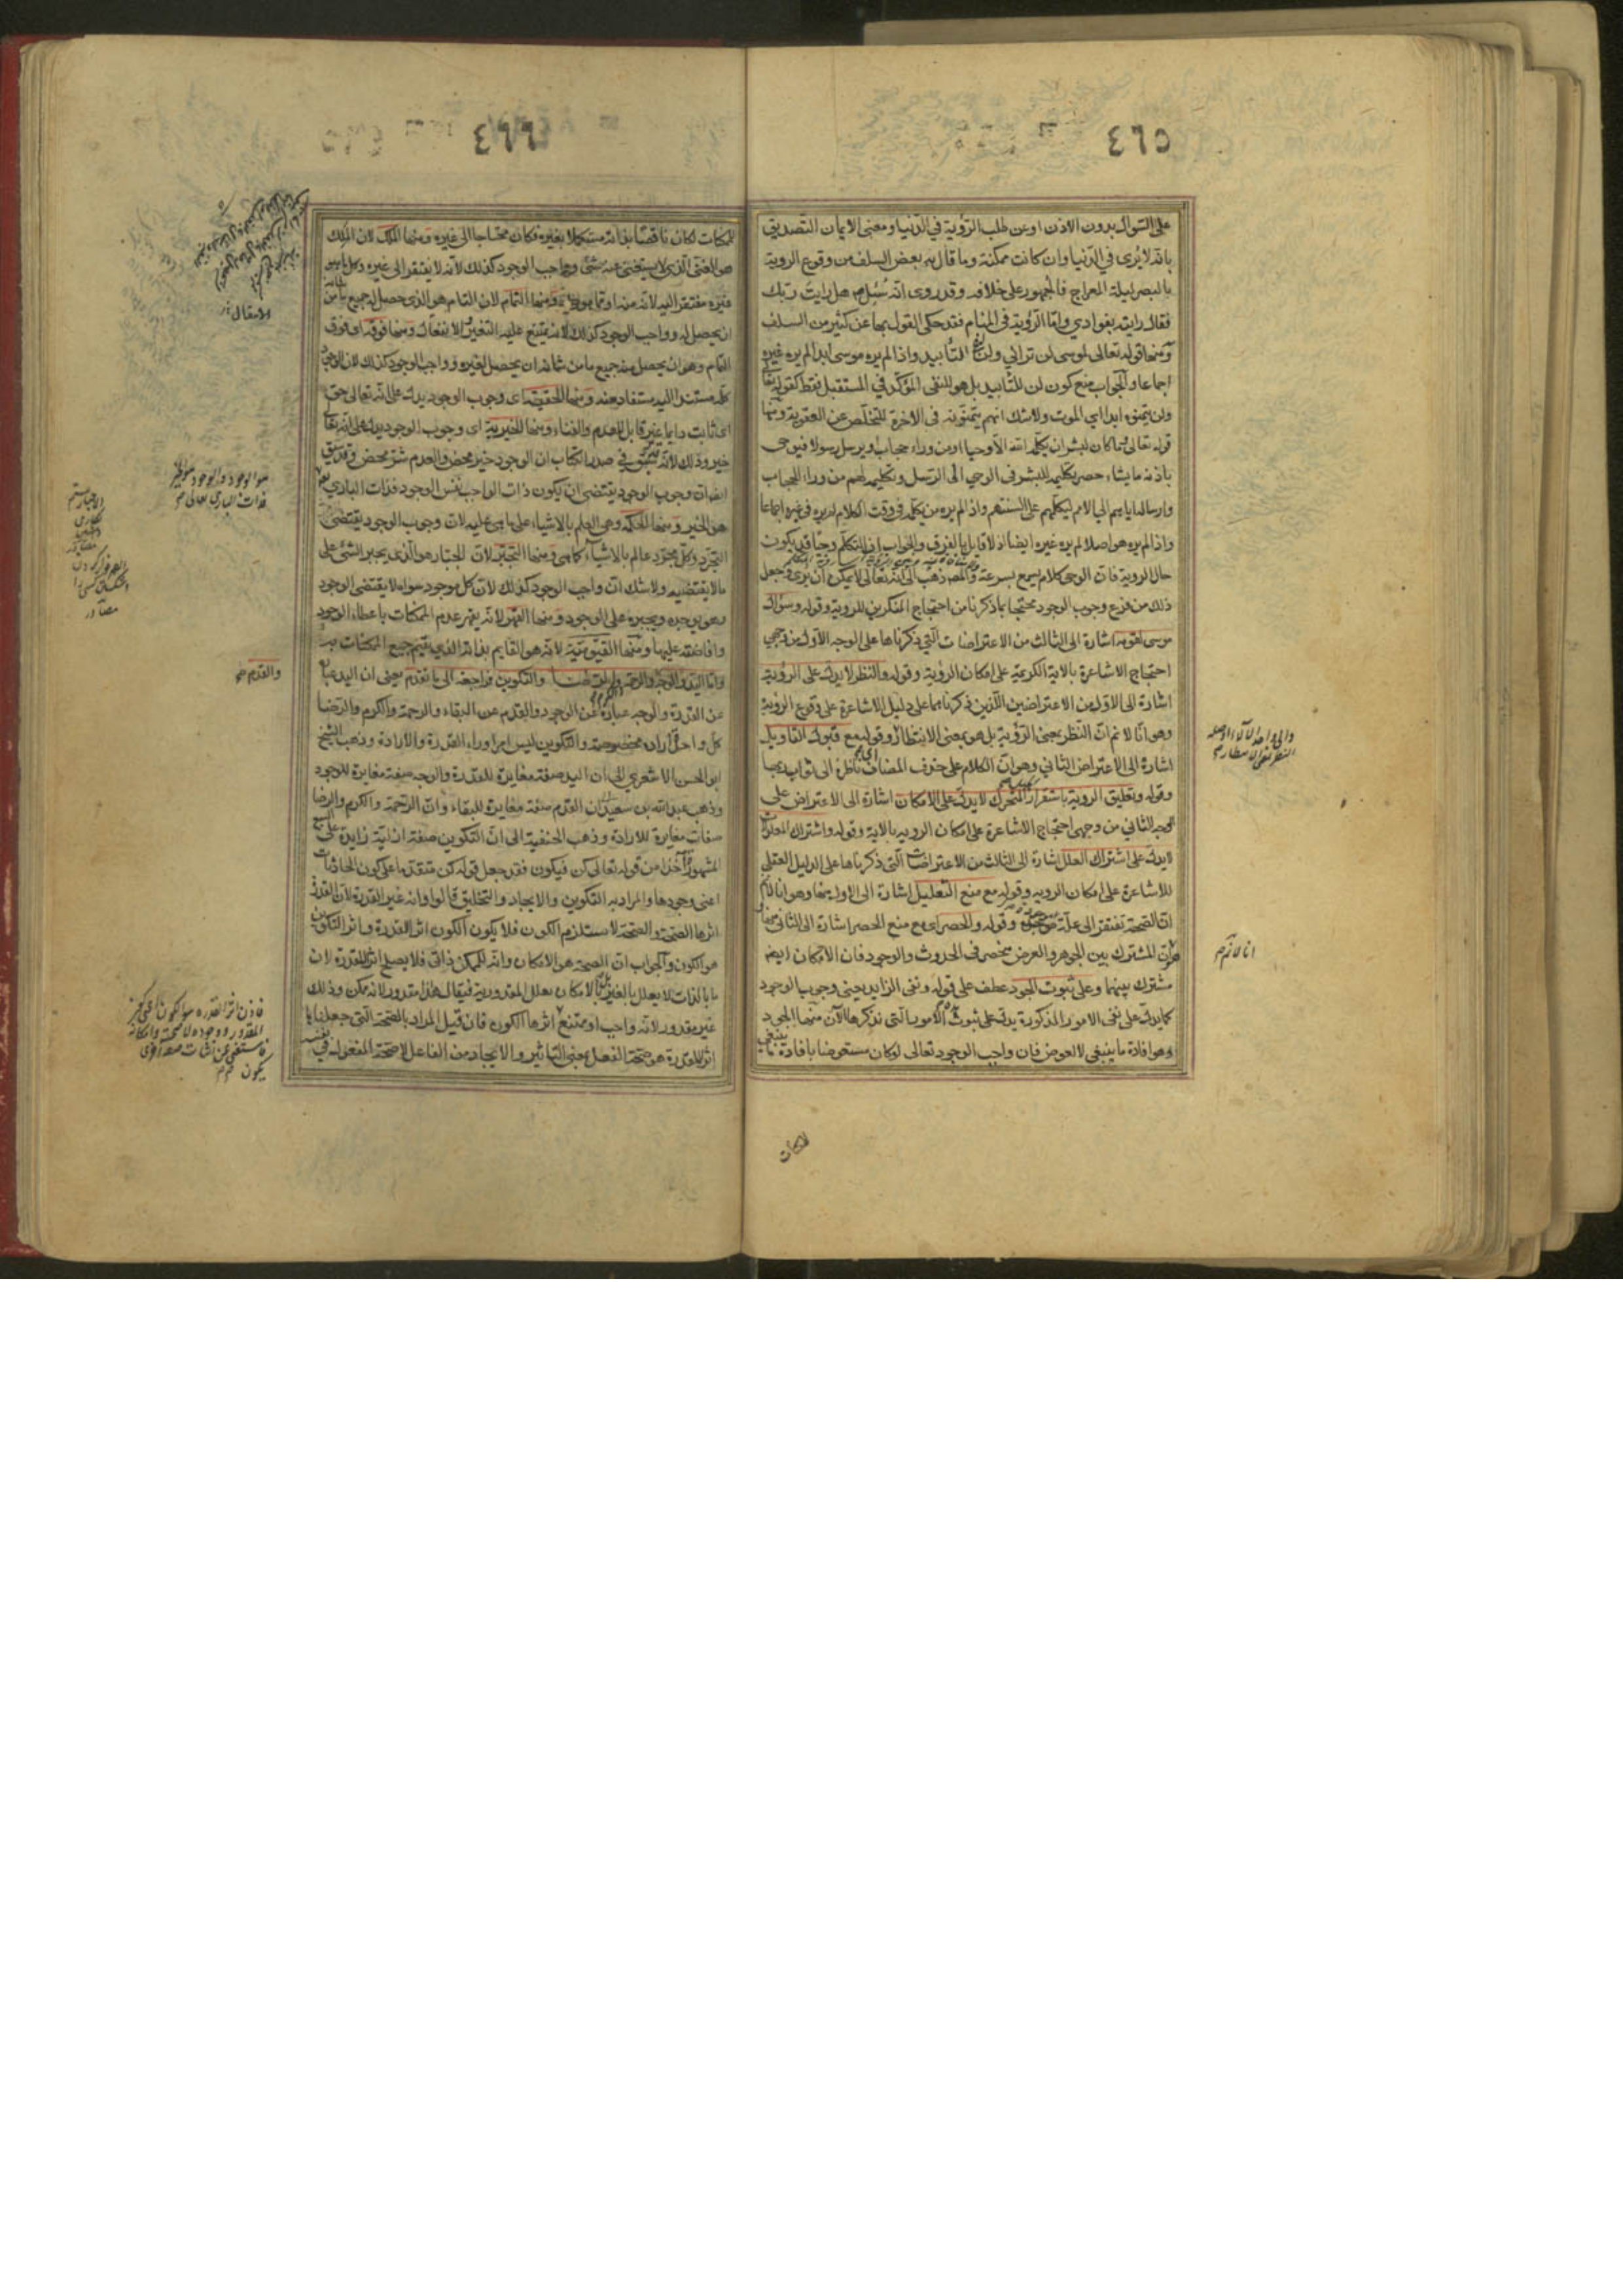 ٤٦٥
على السؤال بدون الاذن او عن طلب الرؤية في الدنيا ومعنى الايمان التصديق
بانه لا يرى في الدنيا وان كانت ممكنة وما قال به بعض السلف من وقوع الروية
بالبصر ليلة المعراج فالجمهور على خلافه وقد روى انه سئل هل رايت ربك
فقال رايته بفوادي واما الرؤية في المنام فقد حكى القول بها عن كثير من السلف
ومنها قوله تعالى لموسى لن تراني ولن التأبيد واذا لم يره موسى ابدا لم يره غيره
اجماعا والجواب منع كون لن للتأبيد بل هو للنفى المؤكد في المستقبل فقط كقوله تعا
ولن يتمنوه ابدا اي الموت ولاشك انهم يتمنونه في الاخرة للتخلص عن العقوبة ومنها
قوله تعالى وما كان لبشر ان يكلمه الله الا وحيا او من وراء حجاب او يرسل رسولا فيوحى
باذنه ما يشاء حصر تكليمه للبشر في الوحي الى الرسل وتكليمه لهم من وراء الحجاب
وارساله اياهم الى الامم ليكلمهم على السنتهم واذا لم يره من يكلمه في وقت الكلام لم يره في غيره اجماعا
واذا لم يره هو اصلا لم يره غيره ايضا اذ لا قايل بالفرق والجواب ان التكلم وحيا قد يكون
حال الروية فان الوحي كلام يسمع بسرعة والمصـ ذهب الى انه تعالى لا يمكن ان يرى وجعل
ذلك من فروع وجوب الوجود محتجا بما ذكرنا من احتجاج المنكرين للروية وقوله وسؤال
موسى لقومه اشارة الى الثالث من الاعتراضات التي ذكرناها على الوجه الاول من وجهي
احتجاج الاشاعرة بالاية الكريمة على امكان الرؤية وقوله والنظر لا يدل على الرؤية
اشارة الى الاول من الاعتراضين اللذين ذكرناهما على دليل الاشاعرة على وقوع الرؤية
وهو انا لا نم ان النظر بمعنى الرؤية بل هو بمعنى الانتظار وقوله مع قبول التاويل
اشارة الى الاعتراض الثاني وهو ان الكلام على حذف المضاف اي ناظرة الى ثواب ربها
وقوله وتعليق الروية باستقرار المتحرك لا يدل على الامكان اشارة الى الاعتراض على
الوجه الثاني من وجهي احتجاج الاشاعرة على امكان الروية بالاية وقوله واشتراك المعلولات
لا يدل على اشتراك العلل اشارة الى الثالث من الاعتراضات التي ذكرناها على الدليل العقلي
للاشاعرة على امكان الروية وقوله مع منع التعليل اشارة الى الاول منها وهو انا لا نم
ان الصحة تفتقر الى علة وقوله والحصر اي مع منع الحصر اشارة الى الثاني منها
وهو ان المشترك بين الجوهر والعرض منحصر في الحدوث والوجود فان الامكان ايضا
مشترك بينهما وعلى ثبوت الجود عطف على قوله ونفى الزايد يعني وجوب الوجود
كما يدل على نفى الامور المذكورة يدل على ثبوت الامور التي نذكرها الآن منها الجود
وهو افادة ما ينبغي لا لعوض فان واجب الوجود تعالى لو كان مستعوضا بافادة ما ينبغي
للممكنات
انا لا نم
٤٦٦
للممكنات لكان ناقصا بذاته مستكملا بغيره فكان محتاجا الى غيره ومنها الملك لان الملك
هو الغنى الذي لا يستغنى عنه شئ وواجب الوجود كذلك لانه لا يفتقر الى غيره وكل
غيره مفتقر اليه لانه منه او مما هو منه ومنها التمام لان التام هو الذي حصل له جميع ما من شانه
ان يحصل له وواجب الوجود كذلك لانه يمتنع عليه التغير والانفعال ومنها فوقه اي فوق
التمام وهو ان يحصل منه جميع ما من شانه ان يحصل لغيره وواجب الوجود كذلك لان الوجود
كله مستند اليه مستفاد منه ومنها الحقيقة اي وجوب الوجود يدل على انه تعالى حق
اي ثابت دايما غير قابل للعدم والفناء ومنها الخيرية اي وجوب الوجود يدل على انه تعا
خير وذلك لانه تحقق في صدر الكتاب ان الوجود خير محض والعدم شر محض وقد سبق
ايضا ان وجوب الوجود يقتضى ان يكون ذات الواجب نفس الوجود فذات الباري تعا
هو الخير ومنها الحكمة وهي العلم بالاشياء على ما هي عليه لان وجوب الوجود يقتضى
التجرد وكل مجرد عالم بالاشياء كما هي ومنها التجبر لان الجبار هو الذي يجبر الشئ على
ما لا يقتضيه ولاشك ان واجب الوجود كذلك لان كل موجود سواه لا يقتضى الوجود
وهو يوجده ويجبره على الوجود ومنها القهر لانه يقهر عدم الممكنات باعطاء الوجود
وافاضته عليها ومنها القيومية لانه هو القايم بذاته الذي يقيم جميع الممكنات به
واما اليد والوجه والرحمة والكرم والرضا والتكوين فراجعة الى ما تقدم يعني ان اليد عبارة
عن القدرة والوجه عبارة عن الوجود والقدم عن البقاء والرحمة والكرم والرضا
كل واحد ارادة مخصوصة والتكوين ليس امرا وراء القدرة والارادة وذهب الشيخ
ابو الحسن الاشعري الى ان اليد صفة مغايرة للقدرة والوجه صفة مغايرة للوجود
وذهب عبد الله بن سعيد الى ان القدم صفة مغايرة للبقاء وان الرحمة والكرم والرضا
صفات مغايرة للارادة وذهب الحنفية الى ان التكوين صفة ازلية زايدة على السبع
المشهورة اخذا من قوله تعالى كن فيكون فقد جعل قوله كن متقدما على كون الحادثات
اعنى وجودها والمراد به التكوين والايجاد والتخليق قالوا وانه غير القدرة لان القدرة
اثرها الصحة والصحة لا تستلزم الكون فلا يكون الكون اثر القدرة واثر التكوين
هو الكون والجواب ان الصحة هو الامكان وانه للممكن ذاتي فلا يصلح اثرا للقدرة لان
ما بالذات لا يعلل بالغير بل بالامكان يعلل المقدورية فيقال هذا مقدور لانه ممكن وذلك
غير مقدور لانه واجب او ممتنع اثرها الكون فان قيل المراد بالصحة التي جعلناها
اثرا للقدرة هو صحة الفعل بمعنى التاثير والايجاد من الفاعل لا صحة المفعول في نفسه
الانتقال
هو الوجود والوجود هو الخير
فذات الباري تعالى
والقدم
فاذن اثر القدرة هو الكون